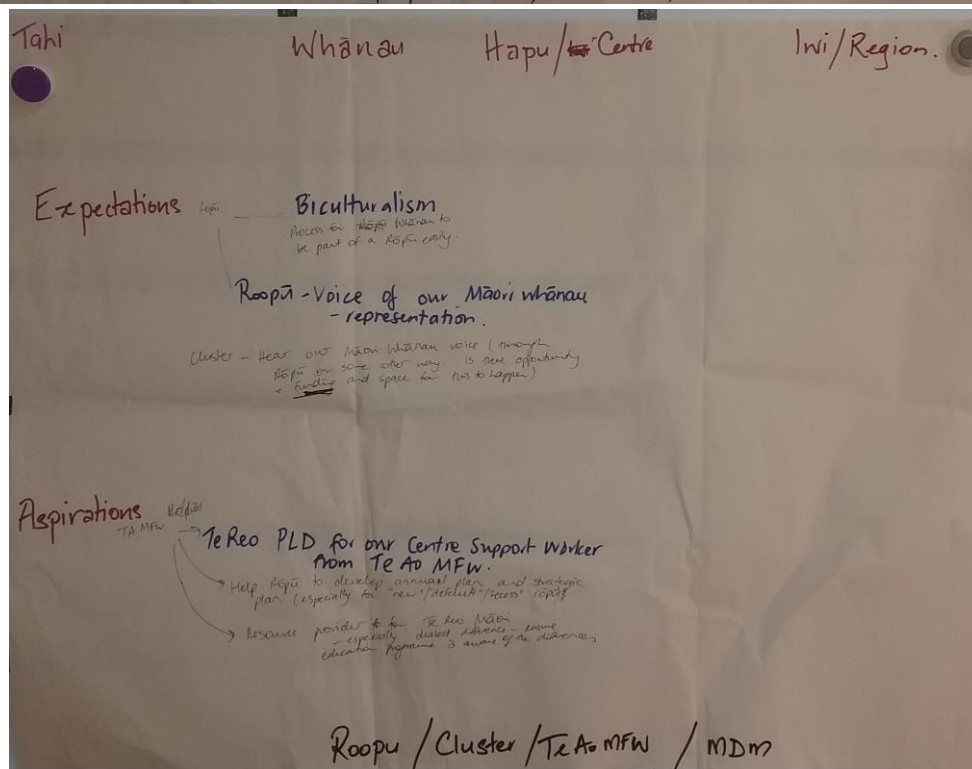 Tahi Whānau Hapu/ Centre Iwi/Region.
Expectations Ropū Biculturalism
Process for Whānau to
be part of a Rōpū easily.
Roopū - Voice of our Māori whānau
- representation.
Cluster - Hear our Māori Whānau voice (through
Rōpū or some other way is there opportunity
+ funding and space for this to happen)
Aspirations
TA MFW
Te Reo PLD for our Centre Support Worker
from Te Ao MFW.
Help Rōpū to develop annual plan and strategic
plan (especially for "new"/ /"recess" rōpū
Resource provider for Te Reo Māori
- especially dialect difference - ensure
education programme is aware of the differences
Roopu /Cluster/Te Ao MFW / MDM